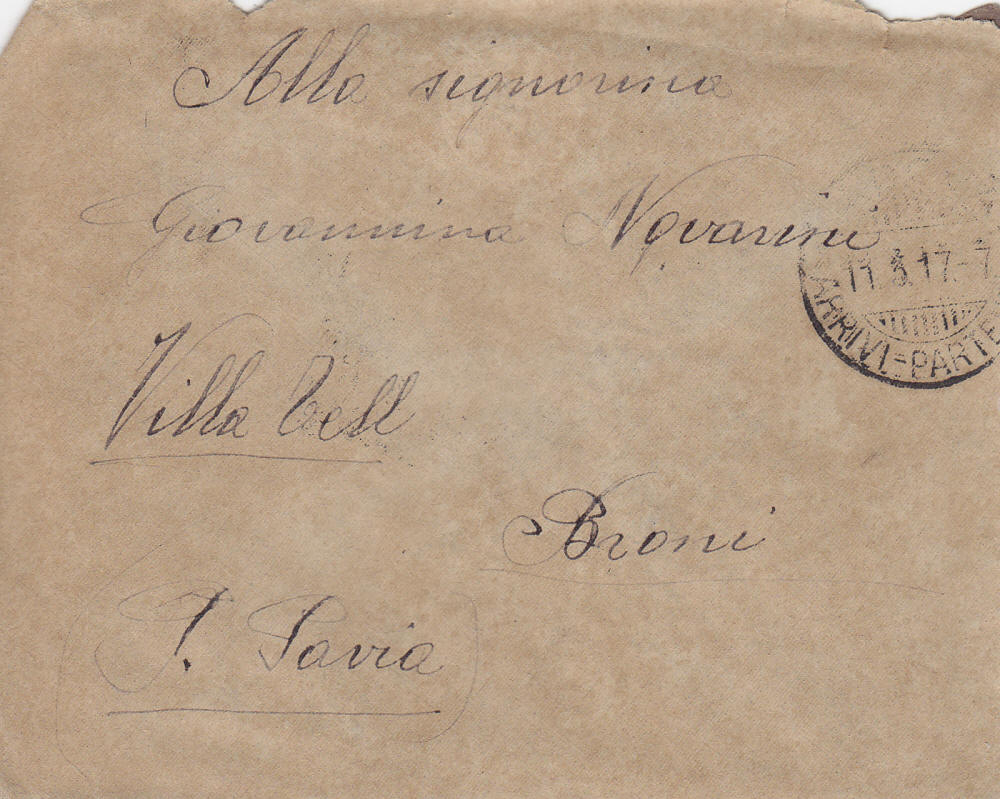 Alla signorina
Giovannina Novarini
11.3.17-7
ARRIVI=PARTE
Villa Tell
Broni
(P. Pavia)